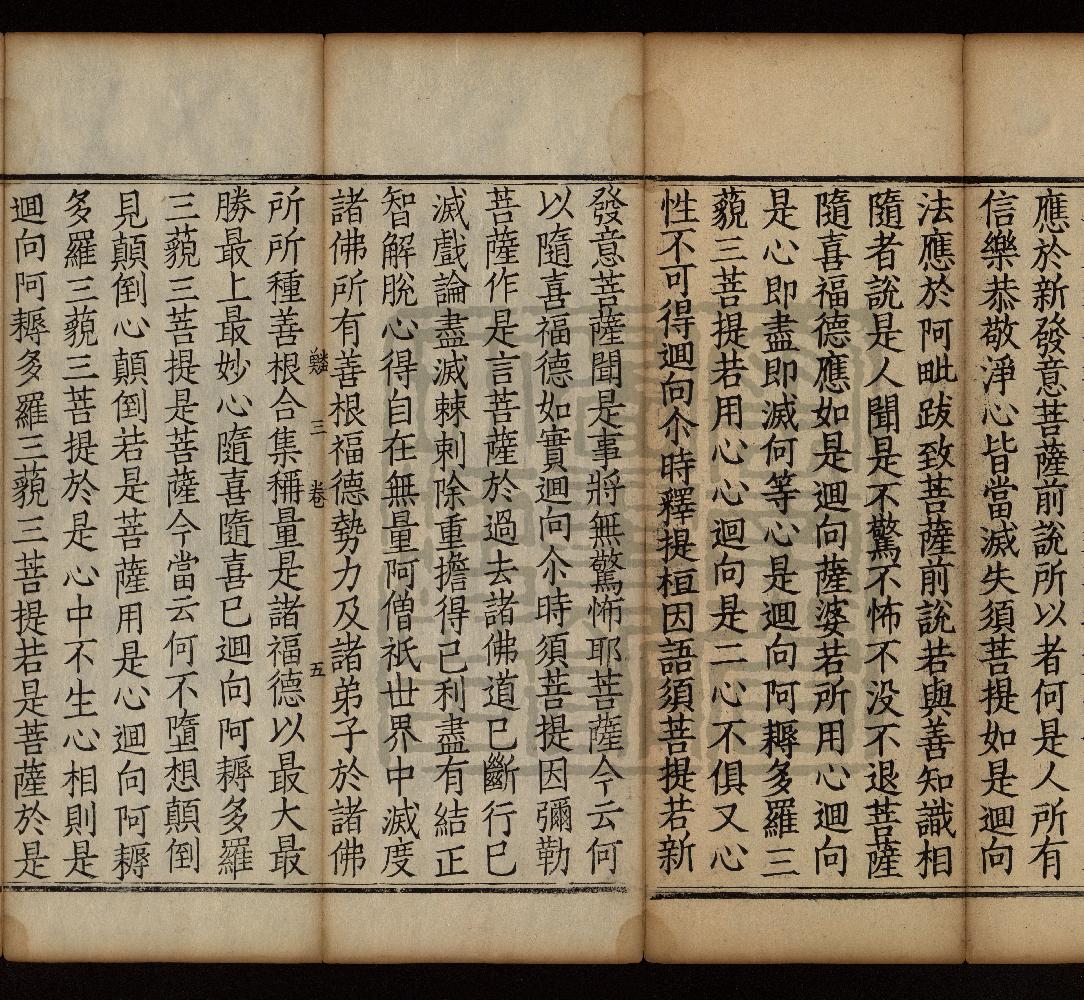 應於新發意菩薩前說所以者何是人所有
信樂恭敬淨心皆當滅失須菩提如是迴向
法應於阿毗跋致菩薩前說若與善知識相
隨者說是人聞是不驚不怖不没不退菩薩
隨喜福德應如是迴向薩婆若所用心迴向
是心即盡即滅何等心是迴向阿耨多羅三
藐三菩提若用心心迴向是二心不俱又心
性不可得迴向尒時釋提桓因語須菩提若新
發意菩薩聞是事將無驚怖耶菩薩今云何
以隨喜福德如實迴向尒時須菩提因彌勒
菩薩作是言菩薩於過去諸佛道已斷行已
滅戲論盡滅棘刺除重擔得己利盡有結正
智解脫心得自在無量阿僧祇世界中滅度
諸佛所有善根福德勢力及諸弟子於諸佛
三 卷 五
所所種善根合集稱量是諸福德以最大最
勝最上最妙心隨喜隨喜已迴向阿耨多羅
三藐三菩提是菩薩今當云何不墮想顛倒
見顛倒心顛倒若是菩薩用是心迴向阿耨
多羅三藐三菩提於是心中不生心相則是
迴向阿耨多羅三藐三菩提若是菩薩於是